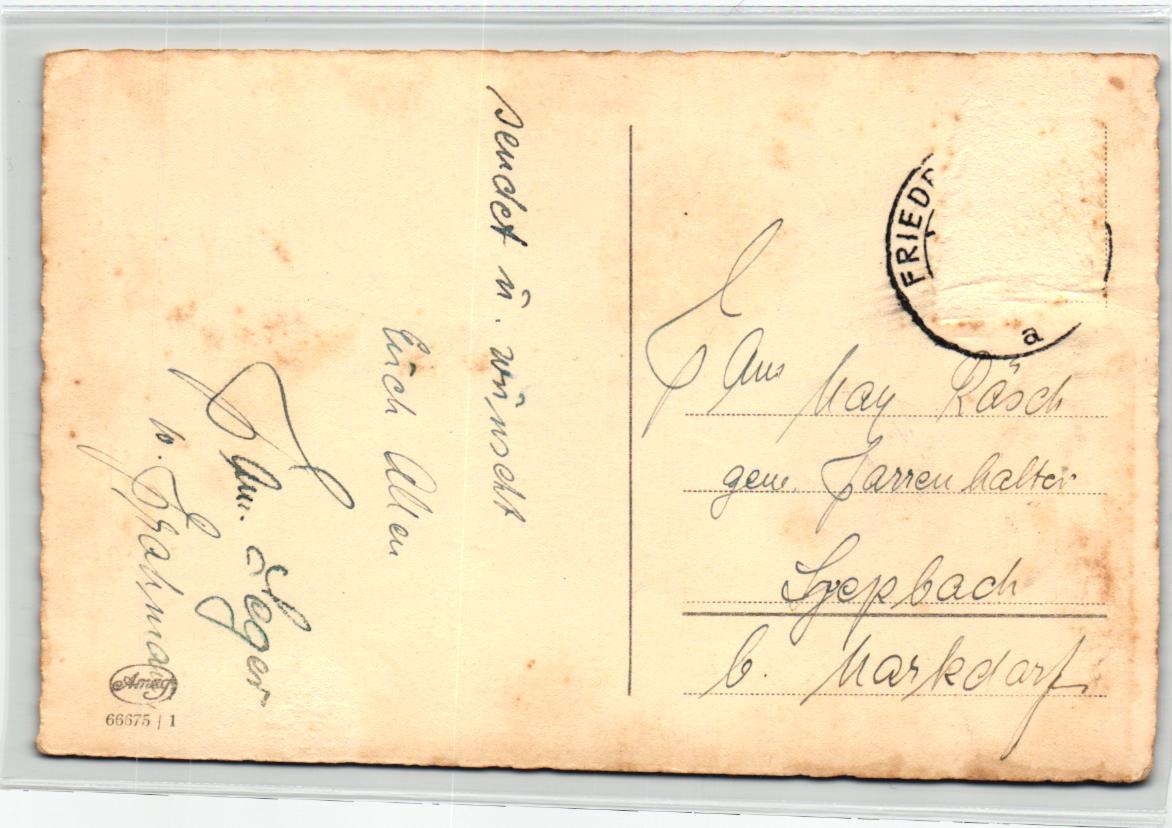 sendet u. wünscht
Euch Allen
Fam. Heger
u. Frahman
Amag
66675 | 1
FRIEDR
a
Fam May Räsch
gem. Farrenhalter
Lyepbach
b. Markdorf